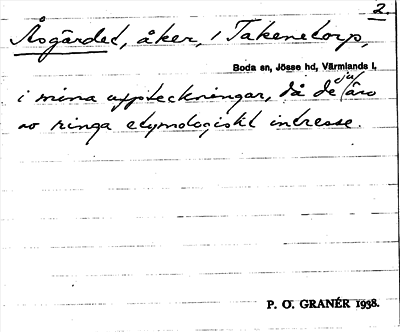 2.
Åsgärdet, åker, i Takenetorp,
Boda sn, Jösse hd, Värmlands l,
i mina uppteckningar, då de ju äro
av ringa etymologiskt intresse.
P. O. GRANÉR 1938.